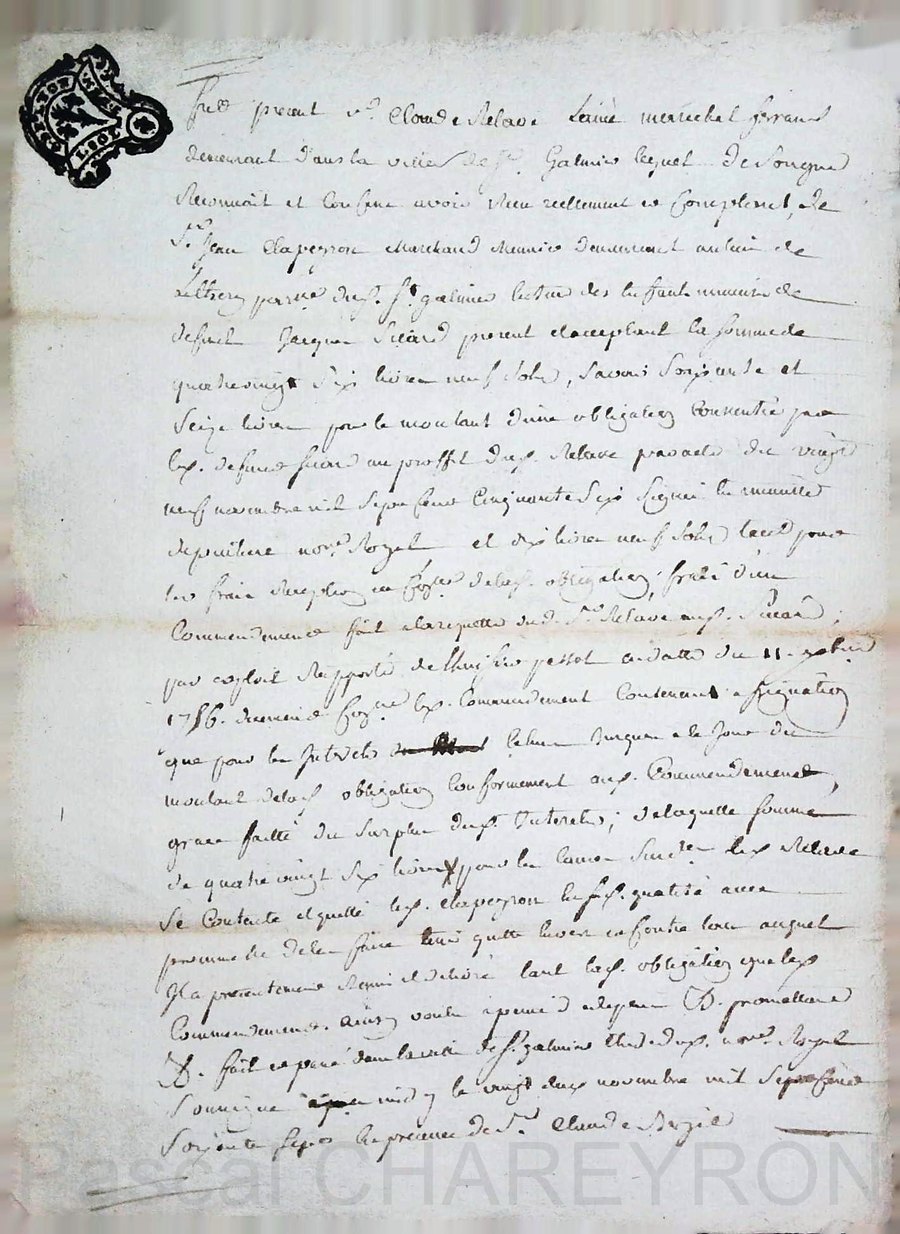 Fut present Sr. Claude Relave Lainé marechal ferrant
demeurant dans la ville de St. Galmier lequel de son gré
Reconnoit et Confesse avoir Reçu reellement et Comptant de
Sr. Jean Clapeyron Marchand Meunier demeurant au lieu de
parroisse dud. St. galmier tuteur des Enfants mineurs de
defunt Jacques Sicard present et acceptant la somme de
quatre vingt six livres neuf sols, savoir soixante et
seize livres pour le montant d'une obligation Consentie par
led. defunt Sicard au proffit dud. Relave par acte du vingt
neuf novembre mil sept cent Cinquante six signé la minutte
depuitiere nore. Royal et dix livres neuf sols tant pour
les frais Reception et Con. de lad. obligation, frais d'un
Commendement fait a la requette dud. Sr. Relave aud. Sicard,
par exploit Rapporté de l'huissier pessot en datte du 11.
1786. led. Commendement Contenant assignation
que pour les Interets a le Jour du
montant de lad. obligation Conformement aud. Commendement,
grace faitte du surplus desd. Interets; de laquelle somme
de quatre vingt six livres pour les Causes susd. led. Relave
se Contente et quitte led. Clapeyron en sad. qualité avec
promesse de l'en faire tenir quitte envers et Contre tous auquel
Il a presentement Remis et delivré tant lad. obligation que led.
Commendement. ainsy voulu a peine et depens &. promettant
&. fait et passé dans la ville de St. galmier Etude du nore. Royal
soussigné midy le vingt deux novembre mil sept cent
soixante sept en presence de Sr. Claude
Pascal CHAREYRON